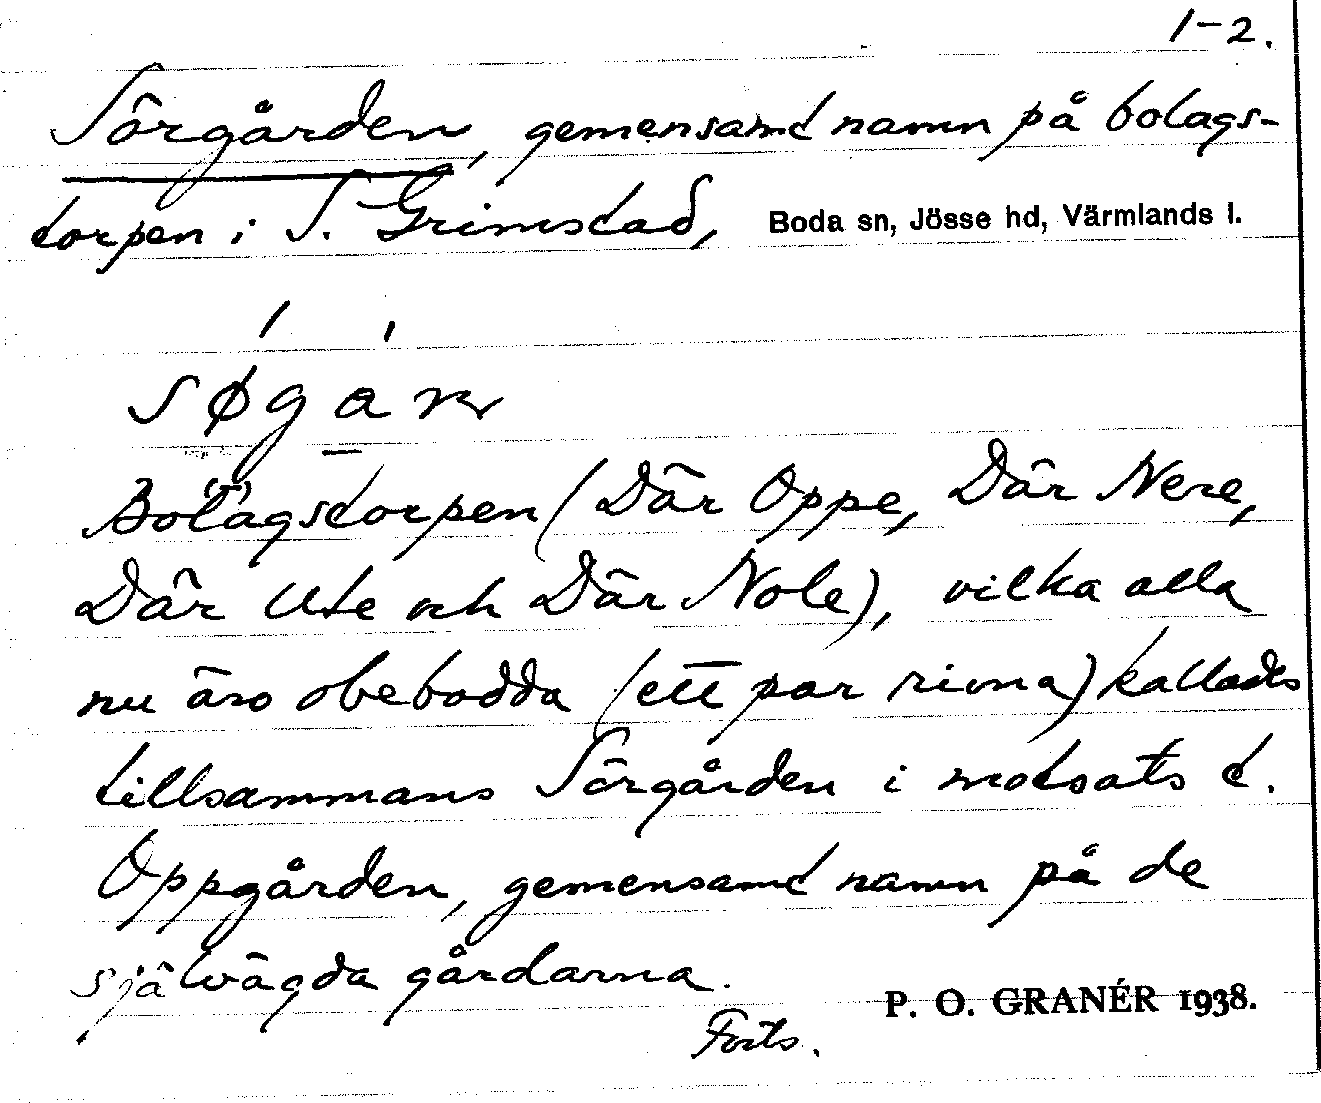 1-2.
Sörgården, gemensamt namn på bolags-
torpen i S. Grimstad, Boda sn, Jösse hd, Värmlands l.
søgan
Bolagstorpen (Där Oppe, Där Nere,
Där Ute och Där Nole), vilka alla
nu äro obebodda (ett par rivna) kallades
tillsammans Sörgården i motsats t.
Oppgården, gemensamt namn på de
självägda gårdarna.
P. O. GRANÉR 1938.
Forts.